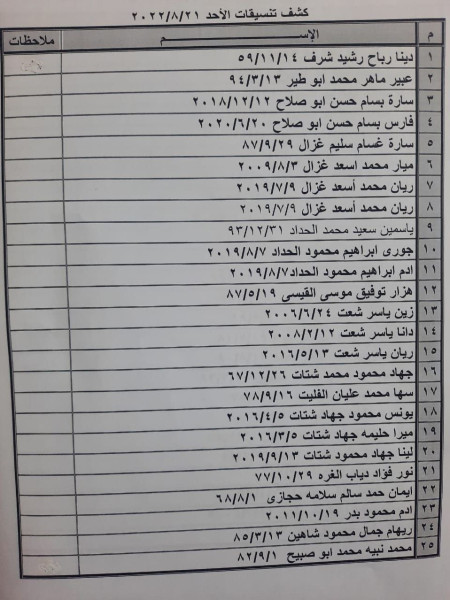 كشف تنسيقات الأحد ٢٠٢٢/٨/٢١
م الإســـم ملاحظات
١ دينا رباح رشيد شرف ٥٩/١١/١٤
٢ عبير ماهر محمد ابو طير ٩٤/٣/١٣
٣ سارة بسام حسن ابو صلاح ٢٠١٨/١٢/١٢
٤ فارس بسام حسن ابو صلاح ٢٠٢٠/٦/٢٠
٥ سارة غسام سليم غزال ٨٧/٩/٢٩
٦ ميار محمد اسعد غزال ٢٠٠٩/٨/٣
٧ ريان محمد أسعد غزال ٢٠١٩/٧/٩
٨ ريان محمد أسعد غزال ٢٠١٩/٧/٩
٩ ياسمين سعيد محمد الحداد ٩٣/١٢/٣١
١٠ جورى ابراهيم محمود الحداد ٢٠١٩/٨/٧
١١ ادم ابراهيم محمود الحداد ٢٠١٩/٨/٧
١٢ هزار توفيق موسى القيسى ٨٧/٥/١٩
١٣ زين ياسر شعت ٢٠٠٦/٦/٢٤
١٤ دانا ياسر شعت ٢٠٠٨/٢/١٢
١٥ ريان ياسر شعت ٢٠١٦/٥/١٣
١٦ جهاد محمود محمد شتات ٦٧/١٢/٢٦
١٧ سها محمد عليان الفليت ٧٨/٩/١٦
١٨ يونس محمود جهاد شتات ٢٠١٦/٤/٥
١٩ ميرا حليمه جهاد شتات ٢٠١٦/٣/٥
٢٠ لينا جهاد محمود شتات ٢٠١٩/٩/١٣
٢١ نور فؤاد دياب الغره ٧٧/١٠/٢٩
٢٢ ايمان حمد سالم سلامه حجازى ٦٨/٨/١
٢٣ ادم محمود بدر ٢٠١١/١٠/١٩
٢٤ ريهام جمال محمود شاهين ٨٥/٣/١٣
٢٥ محمد نبيه محمد ابو صبيح ٨٢/٩/١